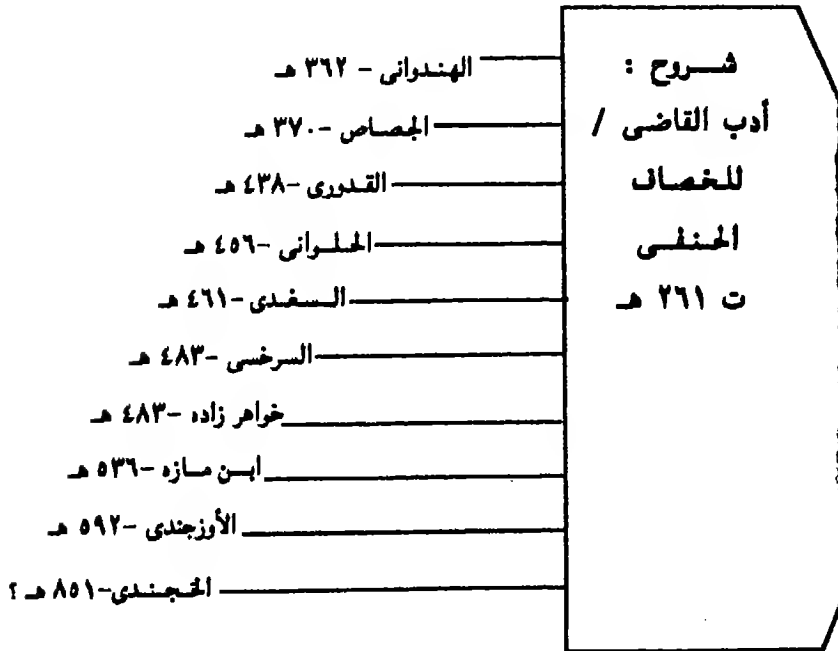 شــروح :
أدب القاضى /
للخصاف
الحنفى
ت ٢٦١ هـ
الهندوانى - ٣٦٢ هـ
الجصاص -٣٧٠ هـ
القدورى -٤٣٨ هـ
الحلوانى -٤٥٦ هـ
السغدى -٤٦١ هـ
السرخسى -٤٨٣ هـ
خواهر زاده -٤٨٣ هـ
ابن مازه -٥٣٦ هـ
الأوزجندى -٥٩٢ هـ
الخجندى-٨٥١ هـ ؟